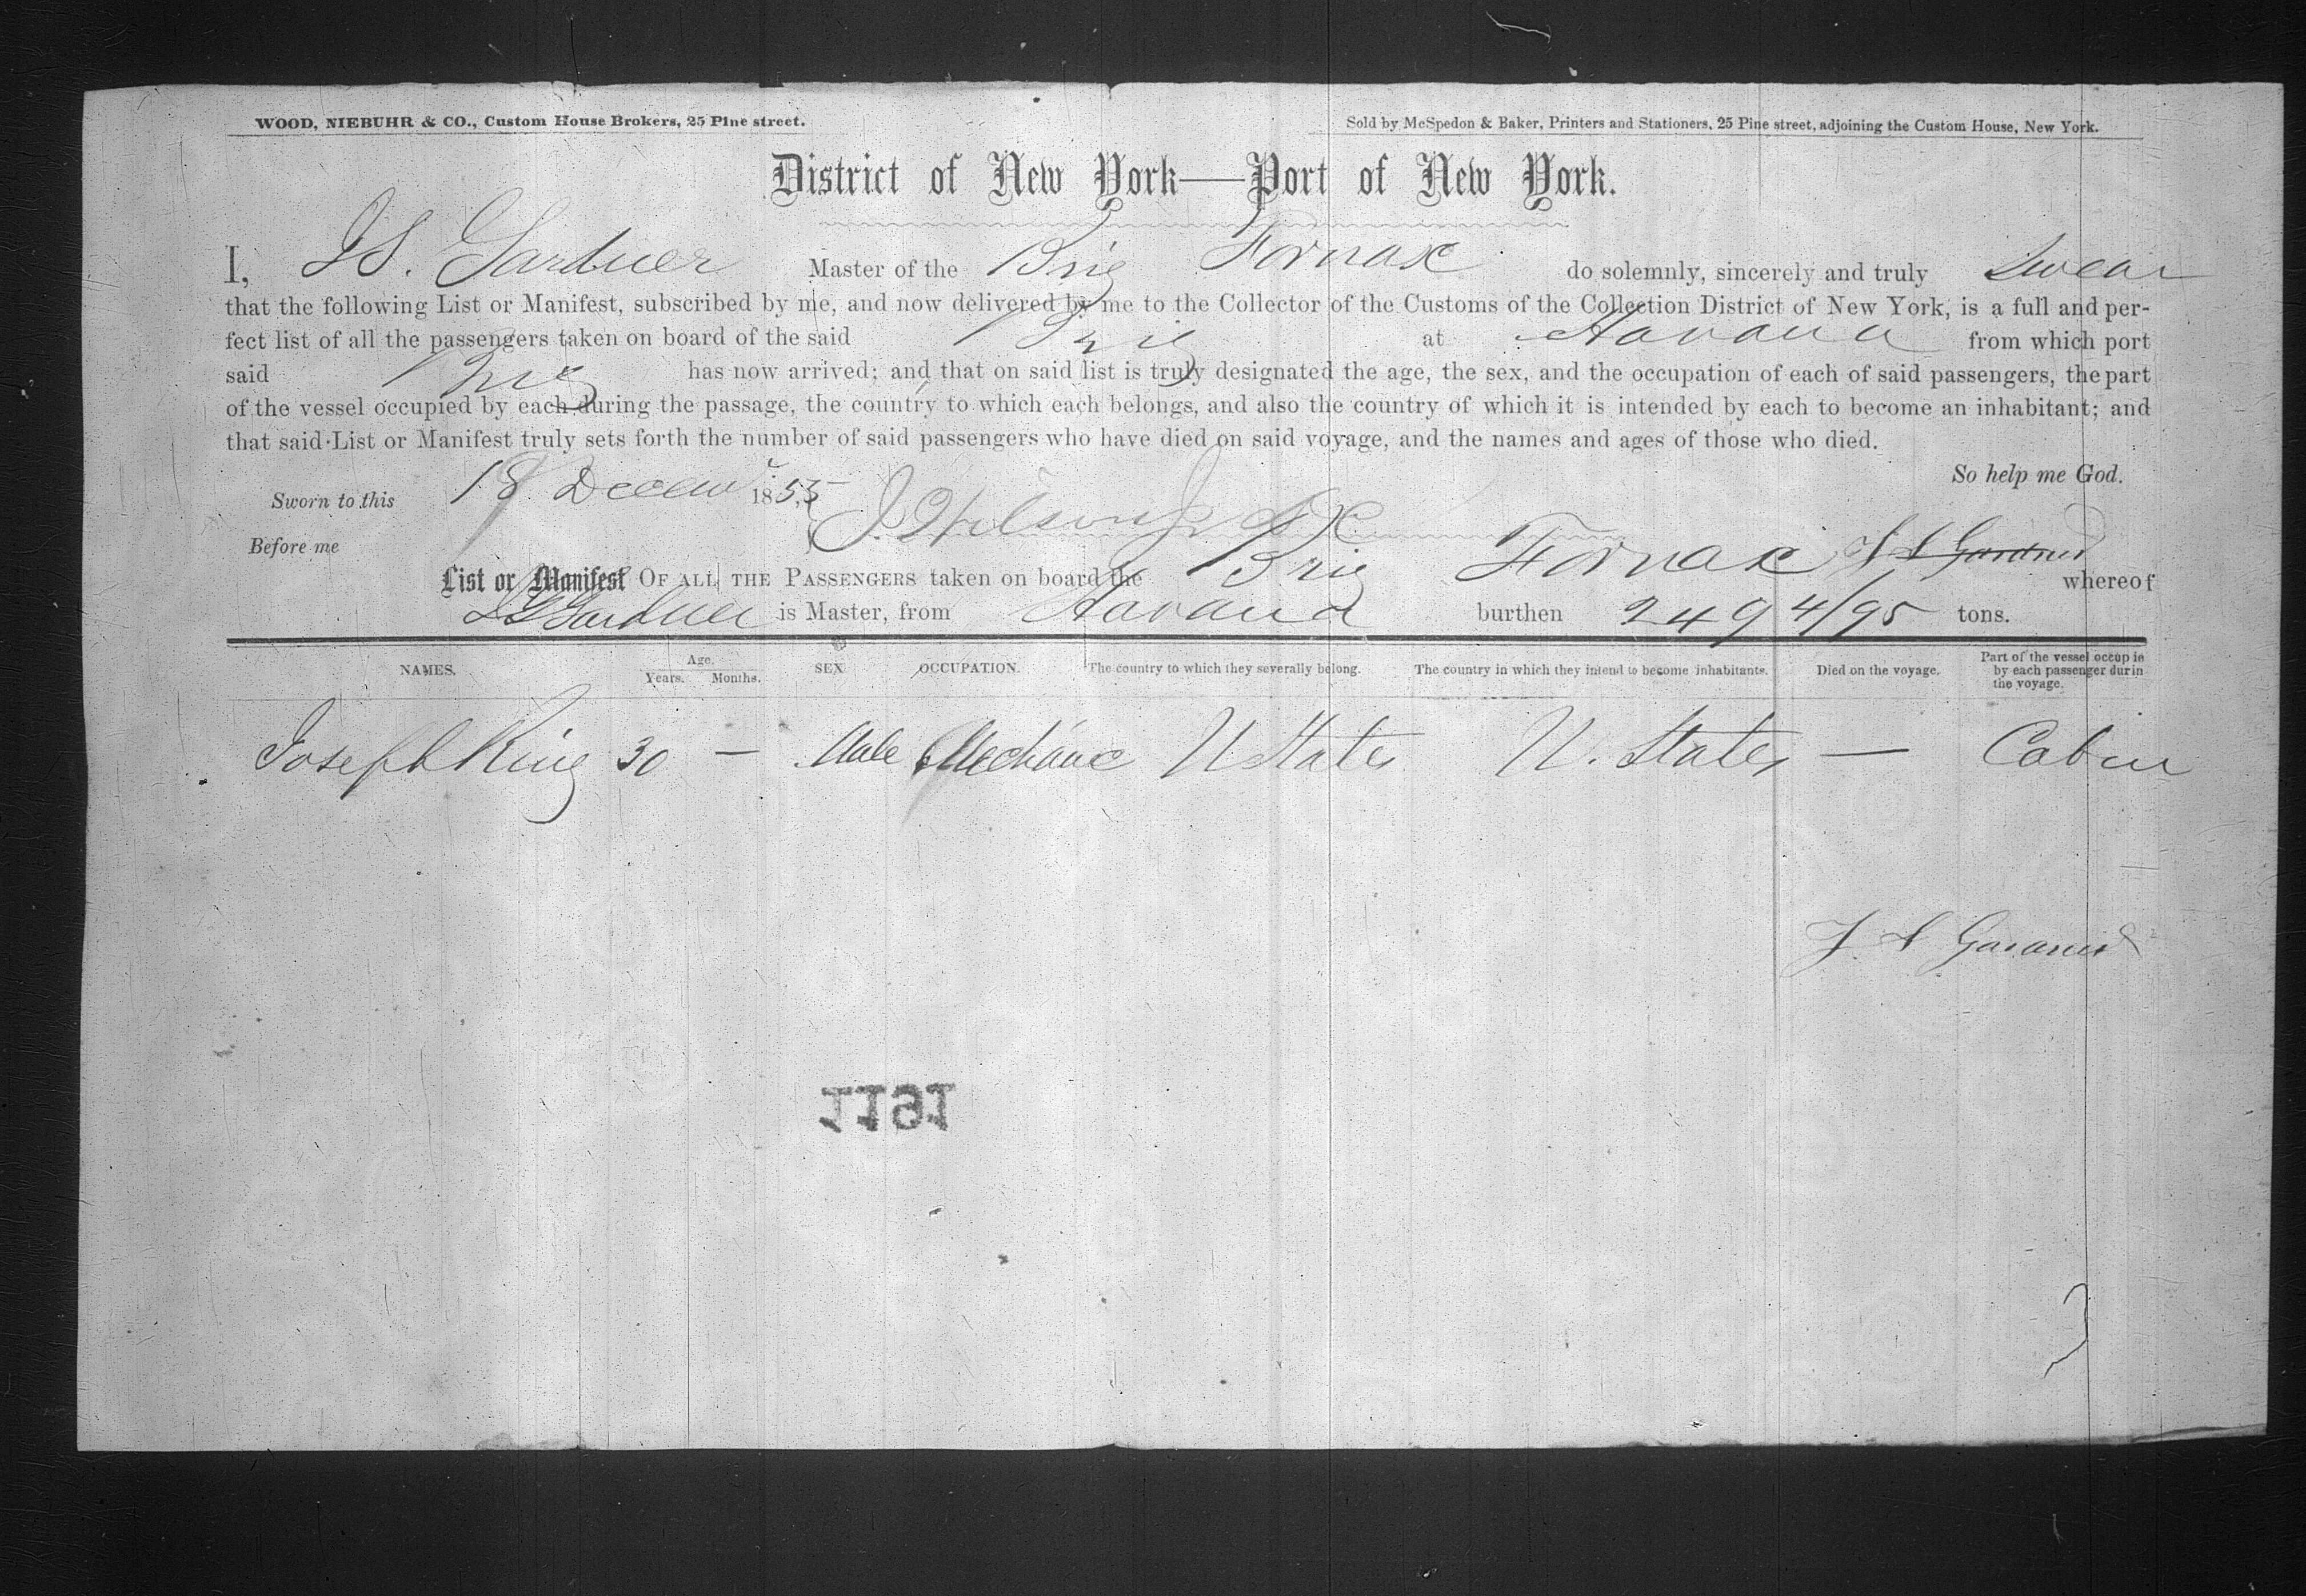 WOOD, NIEBUHR & CO., Custom House Brokers, 25 Pine street. Sold by McSpedon & Baker, Printers and Stationers, 25 Pine street, adjoining the Custom House, New York.
District of New York—Port of New York.
I, J S. Gardner Master of the Brig Fornax do solemnly, sincerely and truly Swear
that the following List or Manifest, subscribed by me, and now delivered by me to the Collector of the Customs of the Collection District of New York, is a full and per-
fect list of all the passengers taken on board of the said Brig at Havana from which port
said Brig has now arrived; and that on said list is truly designated the age, the sex, and the occupation of each of said passengers, the part
of the vessel occupied by each during the passage, the country to which each belongs, and also the country of which it is intended by each to become an inhabitant; and
that said List or Manifest truly sets forth the number of said passengers who have died on said voyage, and the names and ages of those who died.
So help me God.
Sworn to this 18 Decem 1855
Before me J S Gardner
List or Manifest OF ALL THE PASSENGERS taken on board the Brig Fornax whereof
J S Gardner is Master, from Havana burthen 249 4/95 tons.
NAMES. Age. Years. Months. SEX OCCUPATION. The country to which they severally belong. The country in which they intend to become inhabitants. Died on the voyage. Part of the vessel occupie by each passenger durin the voyage.
Joseph King 30 — Male Mechanic U States U. States — Cabin
J S Gardner
1191